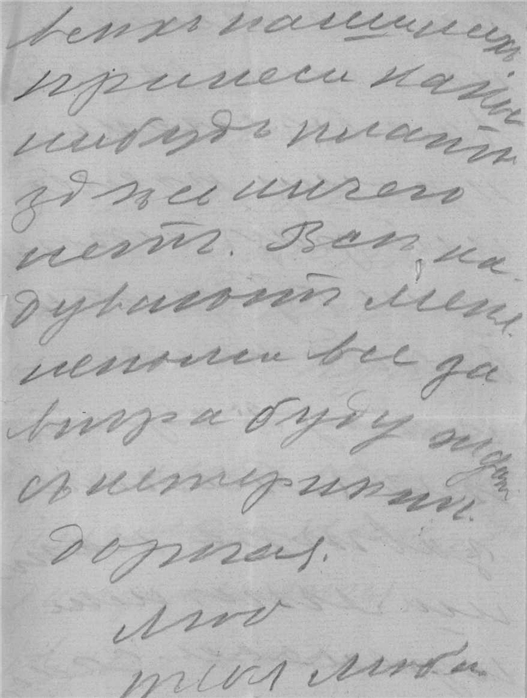 всихъ нашихъ
принеси какой
нибудь платы
здѣсе ничего
нетъ. Все на
дуваютъ меня.
исполни все за
втра буду ждат
съ нетерпинии.
дорогая.
лю
твоя люба.